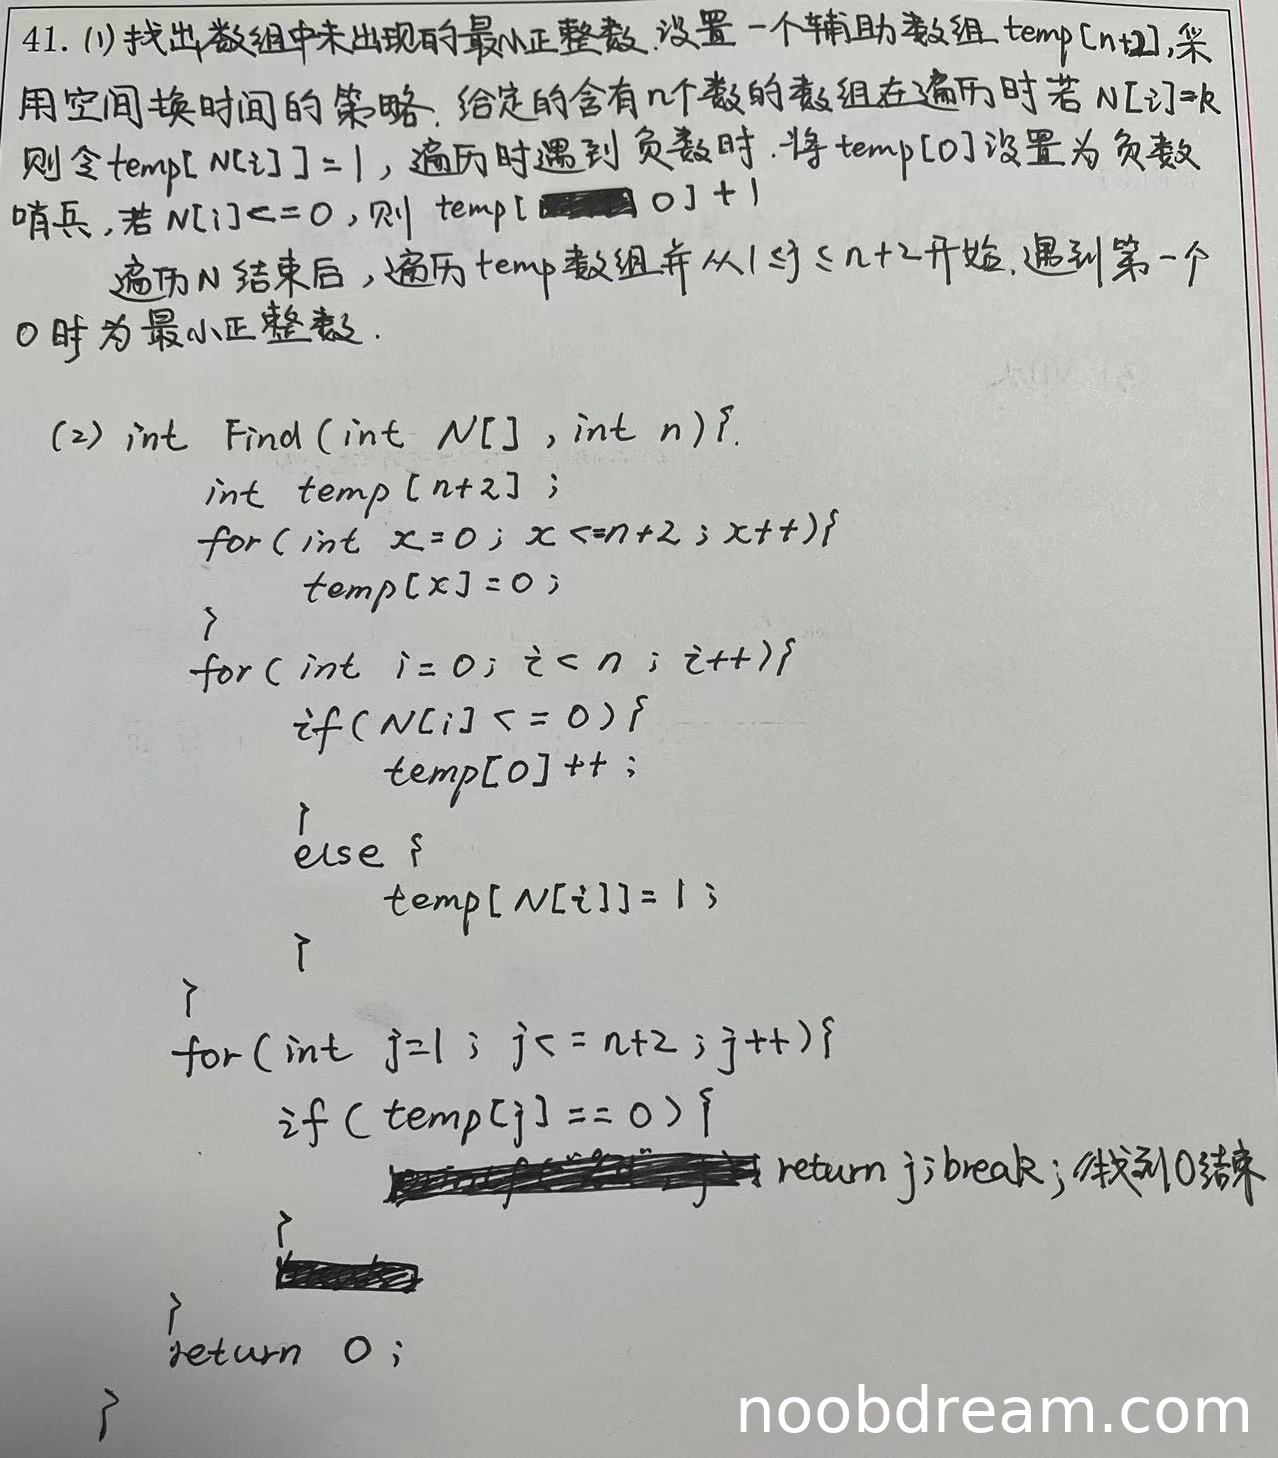 41. (1) 找出数组中未出现的最小正整数. 设置一个辅助数组 temp[n+2], 采
用空间换时间的策略. 给定的含有n个数的数组在遍历时若 N[i]=k
则令temp[ N[i] ] = 1, 遍历时遇到负数时. 将temp[0]设置为负数
哨兵, 若 N[i]<=0, 则 temp[ 0] + 1
遍历N 结束后, 遍历temp数组并从1≤j≤n+2开始. 遇到第一个
0时为最小正整数.
(2) int Find(int N[] , int n){.
int temp[n+2] ;
for( int x=0 ; x<=n+2 ; x++){
temp[x]=0 ;
}
for( int i=0; i< n ; i++){
if( N[i] <= 0){
temp[0]++ ;
}
else {
temp[ N[i]]= 1 ;
}
}
for( int j=1 ; j<= n+2 ; j++){
if( temp[j] == 0){
return j; break; //找到0结束
}
}
return 0 ;
}
noobdream.com